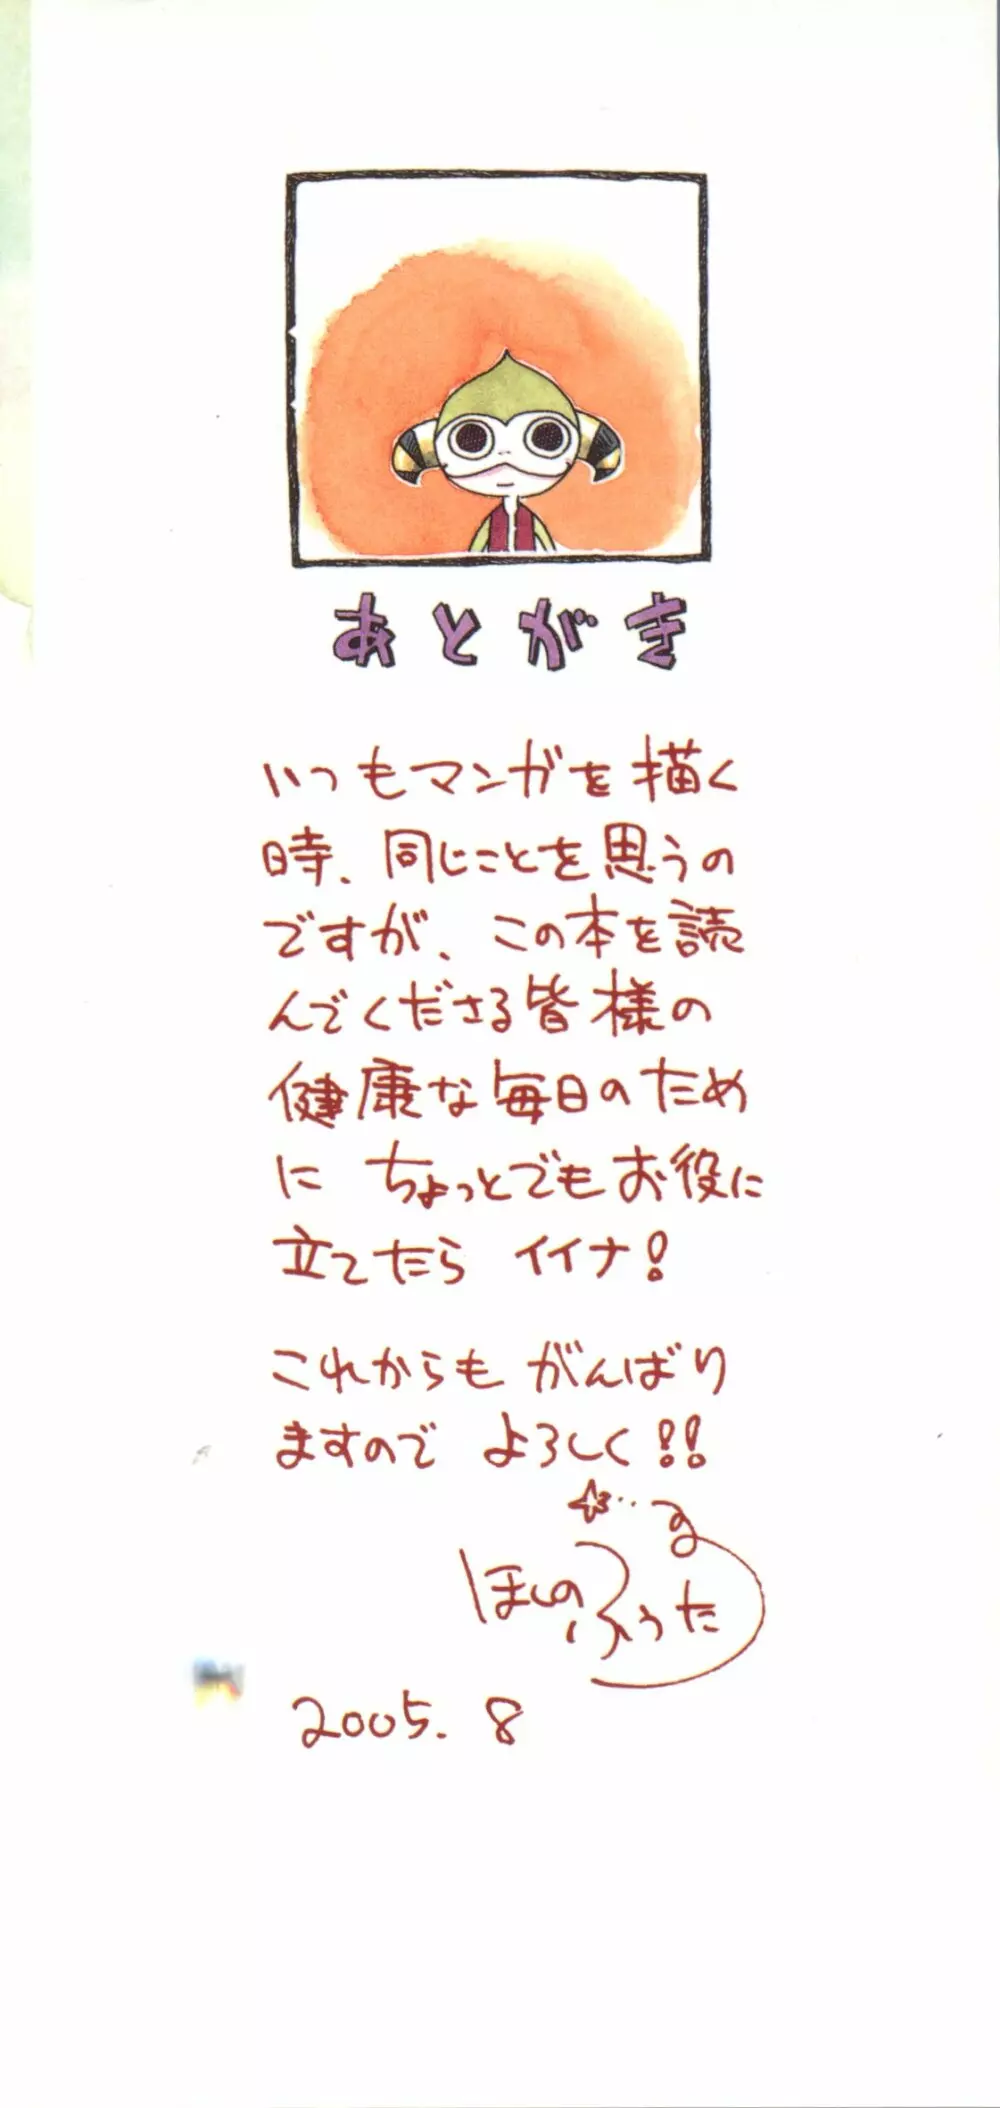 あとがき
いつもマンガを描く
時、同じことを思うの
ですが、この本を読
んでくださる皆様の
健康な毎日のため
に ちょっとでもお役に
立てたら イイナ!
これからも がんばり
ますので よろしく!!
ほしのふうた
2005. 8